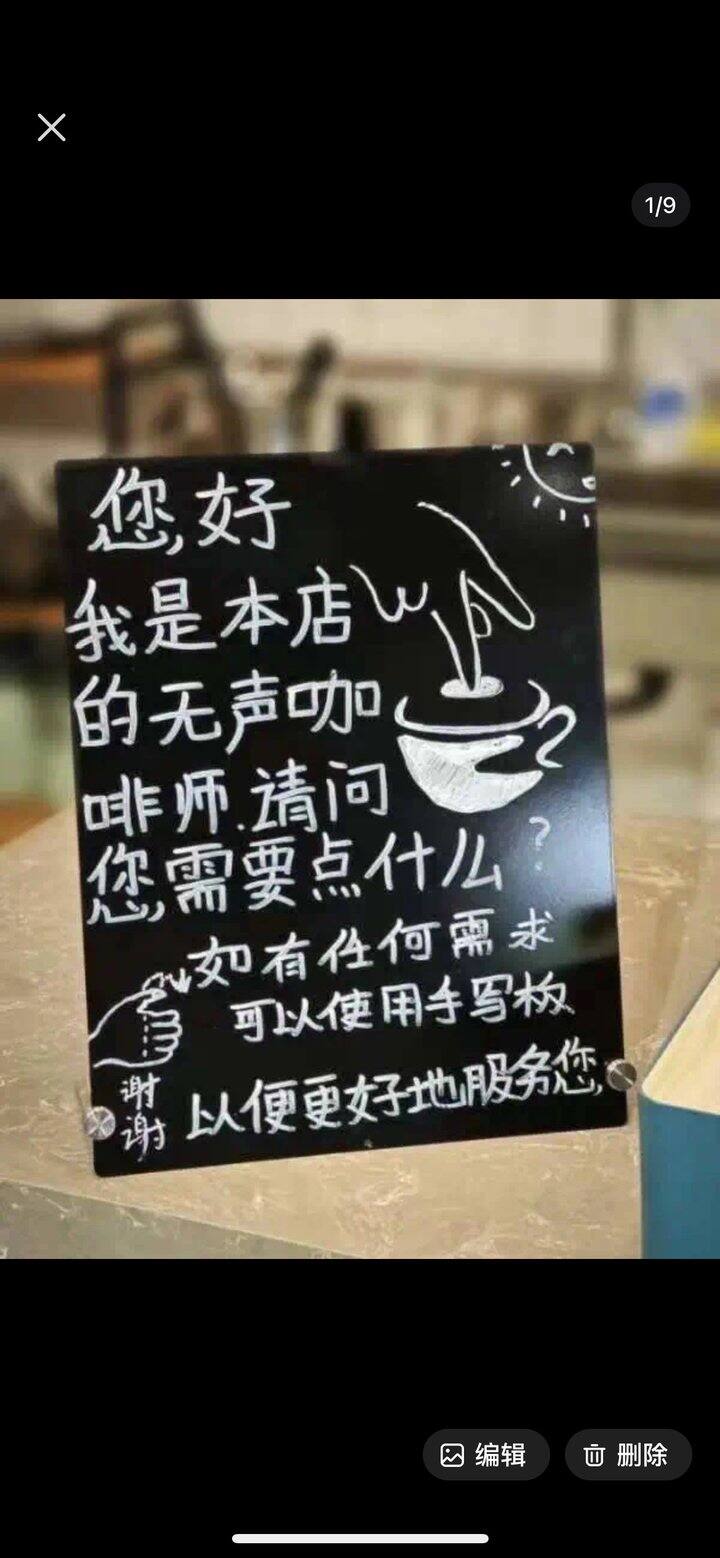 1/9
您,好
我是本店
的无声咖
啡师.请问
您,需要点什么?
如有任何需求
可以使用手写板
以便更好地服务您,
谢谢
编辑
删除